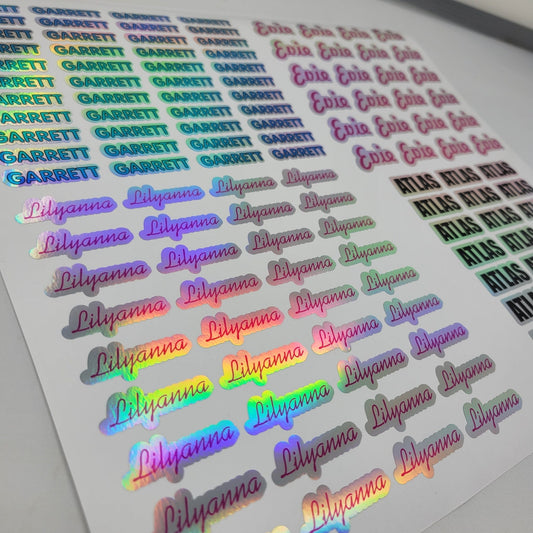 GARRETT GARRETT GARRETT
GARRETT GARRETT GARRETT
GARRETT GARRETT GARRETT
GARRETT GARRETT GARRETT
GARRETT GARRETT GARRETT GARRETT
GARRETT GARRETT GARRETT GARRETT
GARRETT GARRETT GARRETT GARRETT
GARRETT GARRETT GARRETT GARRETT
GARRETT GARRETT GARRETT GARRETT
Evie Evie Evie Evie
Evie Evie Evie Evie
Evie Evie Evie Evie
Evie Evie Evie Evie
Evie Evie Evie Evie
Evie Evie Evie Evie
Lilyanna Lilyanna Lilyanna Lilyanna
Lilyanna Lilyanna Lilyanna Lilyanna
Lilyanna Lilyanna Lilyanna Lilyanna
Lilyanna Lilyanna Lilyanna Lilyanna
Lilyanna Lilyanna Lilyanna Lilyanna
Lilyanna Lilyanna Lilyanna Lilyanna
Lilyanna Lilyanna Lilyanna Lilyanna
Lilyanna Lilyanna Lilyanna Lilyanna
Lilyanna Lilyanna Lilyanna
ATLAS ATLAS ATLAS
ATLAS ATLAS
ATLAS ATLAS
ATLAS ATLAS
ATLAS
ATLAS